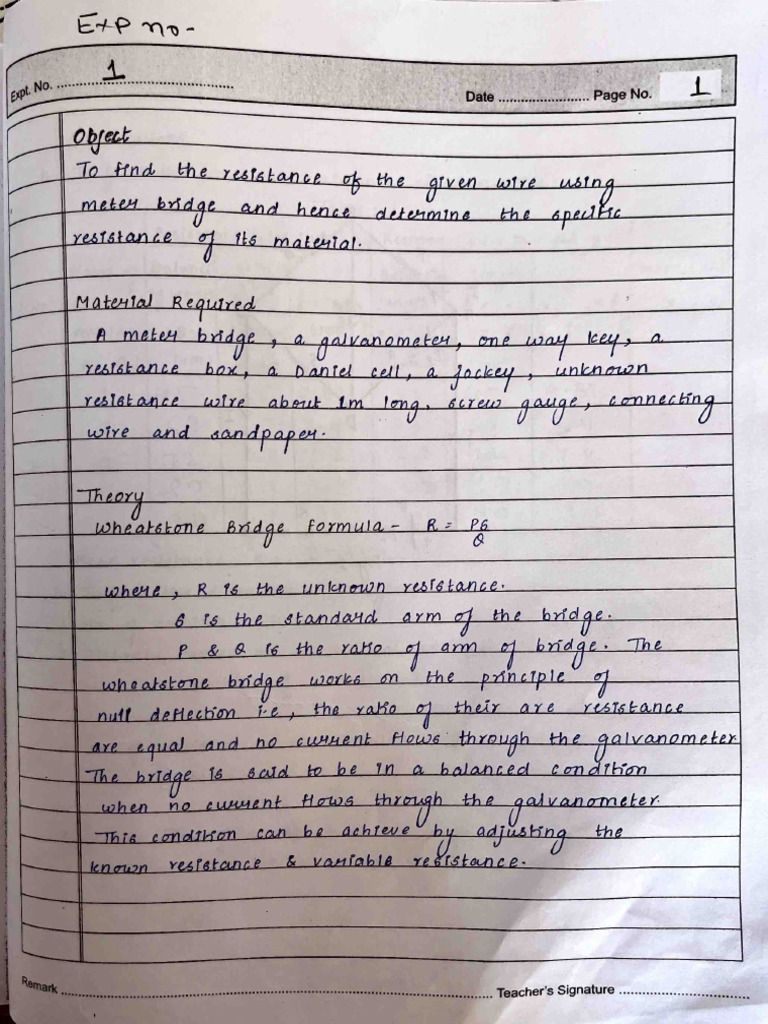 Exp no-
Expt. No. 1
Date Page No. 1
Object
To find the resistance of the given wire using
meter bridge and hence determine the specific
resistance of its material.
Material Required
A meter bridge, a galvanometer, one way key, a
resistance box, a Daniel cell, a jockey, unknown
resistance wire about 1m long, screw gauge, connecting
wire and sandpaper.
Theory
Wheatstone Bridge Formula - R = PS
Q
where, R is the unknown resistance.
S is the standard arm of the bridge.
P & Q is the ratio of arm of bridge. The
wheatstone bridge works on the principle of
null deflection i.e, the ratio of their are resistance
are equal and no current flows through the galvanometer
The bridge is said to be in a balanced condition
when no current flows through the galvanometer.
This condition can be achieve by adjusting the
known resistance & variable resistance.
Remark Teacher's Signature